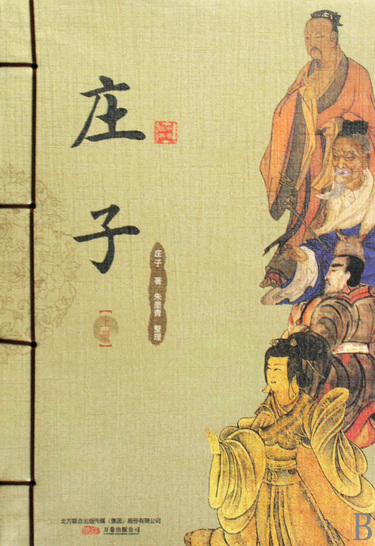 庄子
庄子 著 朱墨青 整理
北方联合出版传媒（集团）股份有限公司
万卷出版公司
B